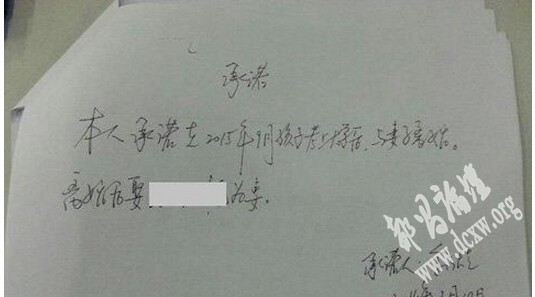 承诺
本人承诺在2015年9月孩子考上大学后，与妻子离婚。
离婚后娶 为妻。
承诺人：
www.dcxw.org